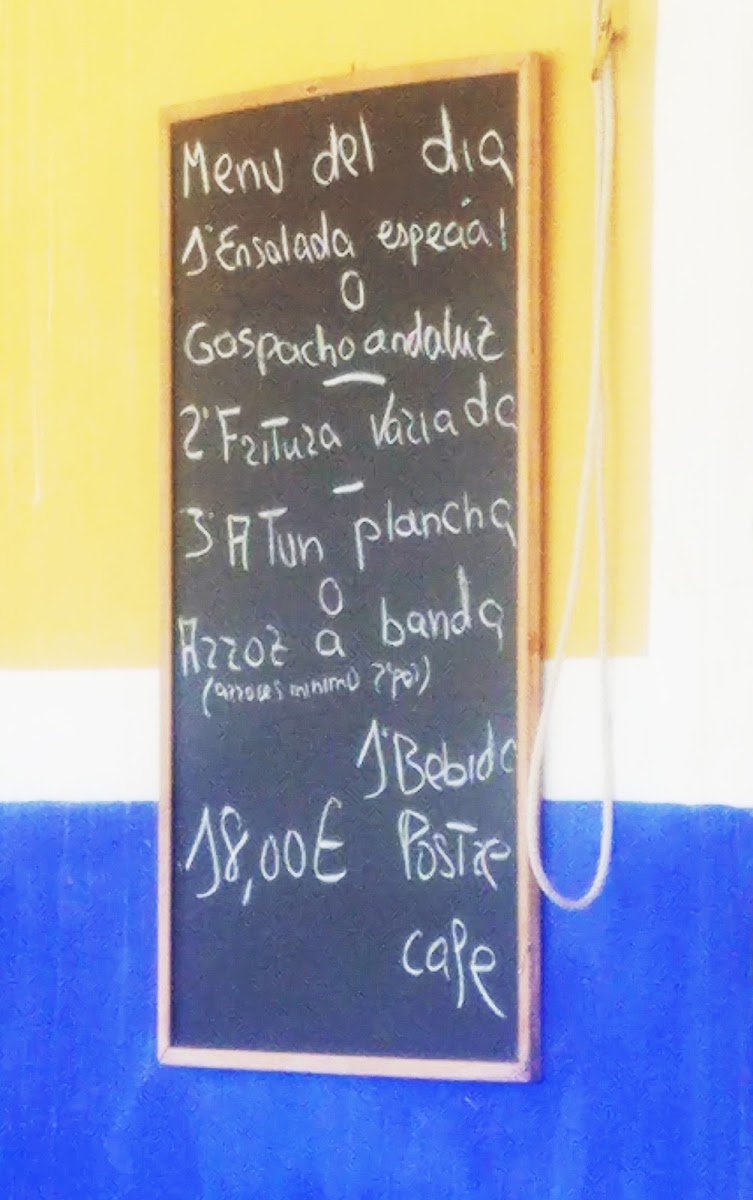 Menu del dia
1º Ensalada especial
O
Gaspacho andaluz
2º Fritura variada
3º Atun plancha
O
Arroz a banda
(arroces minimo
1º Bebida
18,00€ Postre
cafe